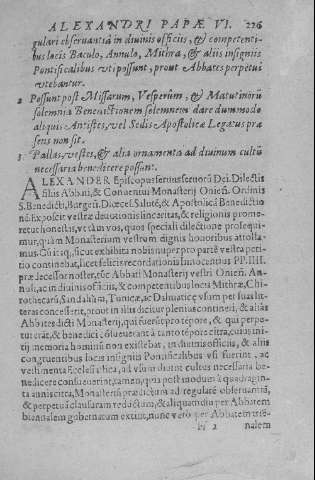 ALEXANDRI PAPÆ VI. 226
gulari obseruantiâ in diuinis officijs, & competenti-
bus locis Baculo, Annulo, Mithra, & alijs insignijs
Pontificalibus vti possunt, prout Abbates perpetui
vtebantur.
2 Possunt post Missarum, Vesperùm, & Matutinorū
solemnia Benedictionem solemnem dare dummodo
aliquis Antistes, vel Sedis Apostolicæ Legatus præ
sens non sit.
3 Pallas, vestes, & alia ornamenta ad diuinum cultū
necessaria benedicere possunt.
ALEXANDER Episcopus seruus seruorū Dei. Dilectis
filijs Abbati, & Conuentui Monasterij Onien. Ordinis
S. Benedicti, Burgen. Diœces. Salutē, & Apostolicā Benedictio
nē. Exposcit vestræ deuotionis sinceritas, & religionis prome-
retur honestas, vt tàm vos, quos speciali dilectione prolequi-
mur, quàm Monasterium vestrum dignis honoribus attolla-
mus. Cū itaq; sicut exhibita nobis nuper pro parte vestra peti-
tio continebat, licet felicis recordationis Innocentius PP. IIII.
prædecessor noster, tūc Abbati Monasterij vestri Onien. An-
nuli, ac in diuinis officijs, & competentibus locis Mithræ, Chi-
rothecarū, Sandaliūm, Tunicæ, ac Dalmaticę vsum per suas lit-
teras concesserit, prout in illis dicitur plenius contineri, & aliàs
Abbates dicti Monasterij, qui fuerūt pro tēpore, & qui perpe-
tui erāt, & benedici cōsueuerant à tanto tēpore citra, cuius ini-
tij memoria hominū non existebat, in diuinis officijs, & alijs
congruentibus locis insignijs Pontificalibus vsi fuerint, ac
vestimenta Ecclesiastica, ad vsum diuini cultus necessaria be-
nedicere consueuerint, tamen, quia postmodum à quadragin-
ta annis citra, Monasteriū prædictum ad regularē obseruantiā,
& perpetuā clausuram reductum, & aliquandiu per Abbatem
biennalem gubernatum extitit, nunc verò per Abbatem trie-
2 nalem